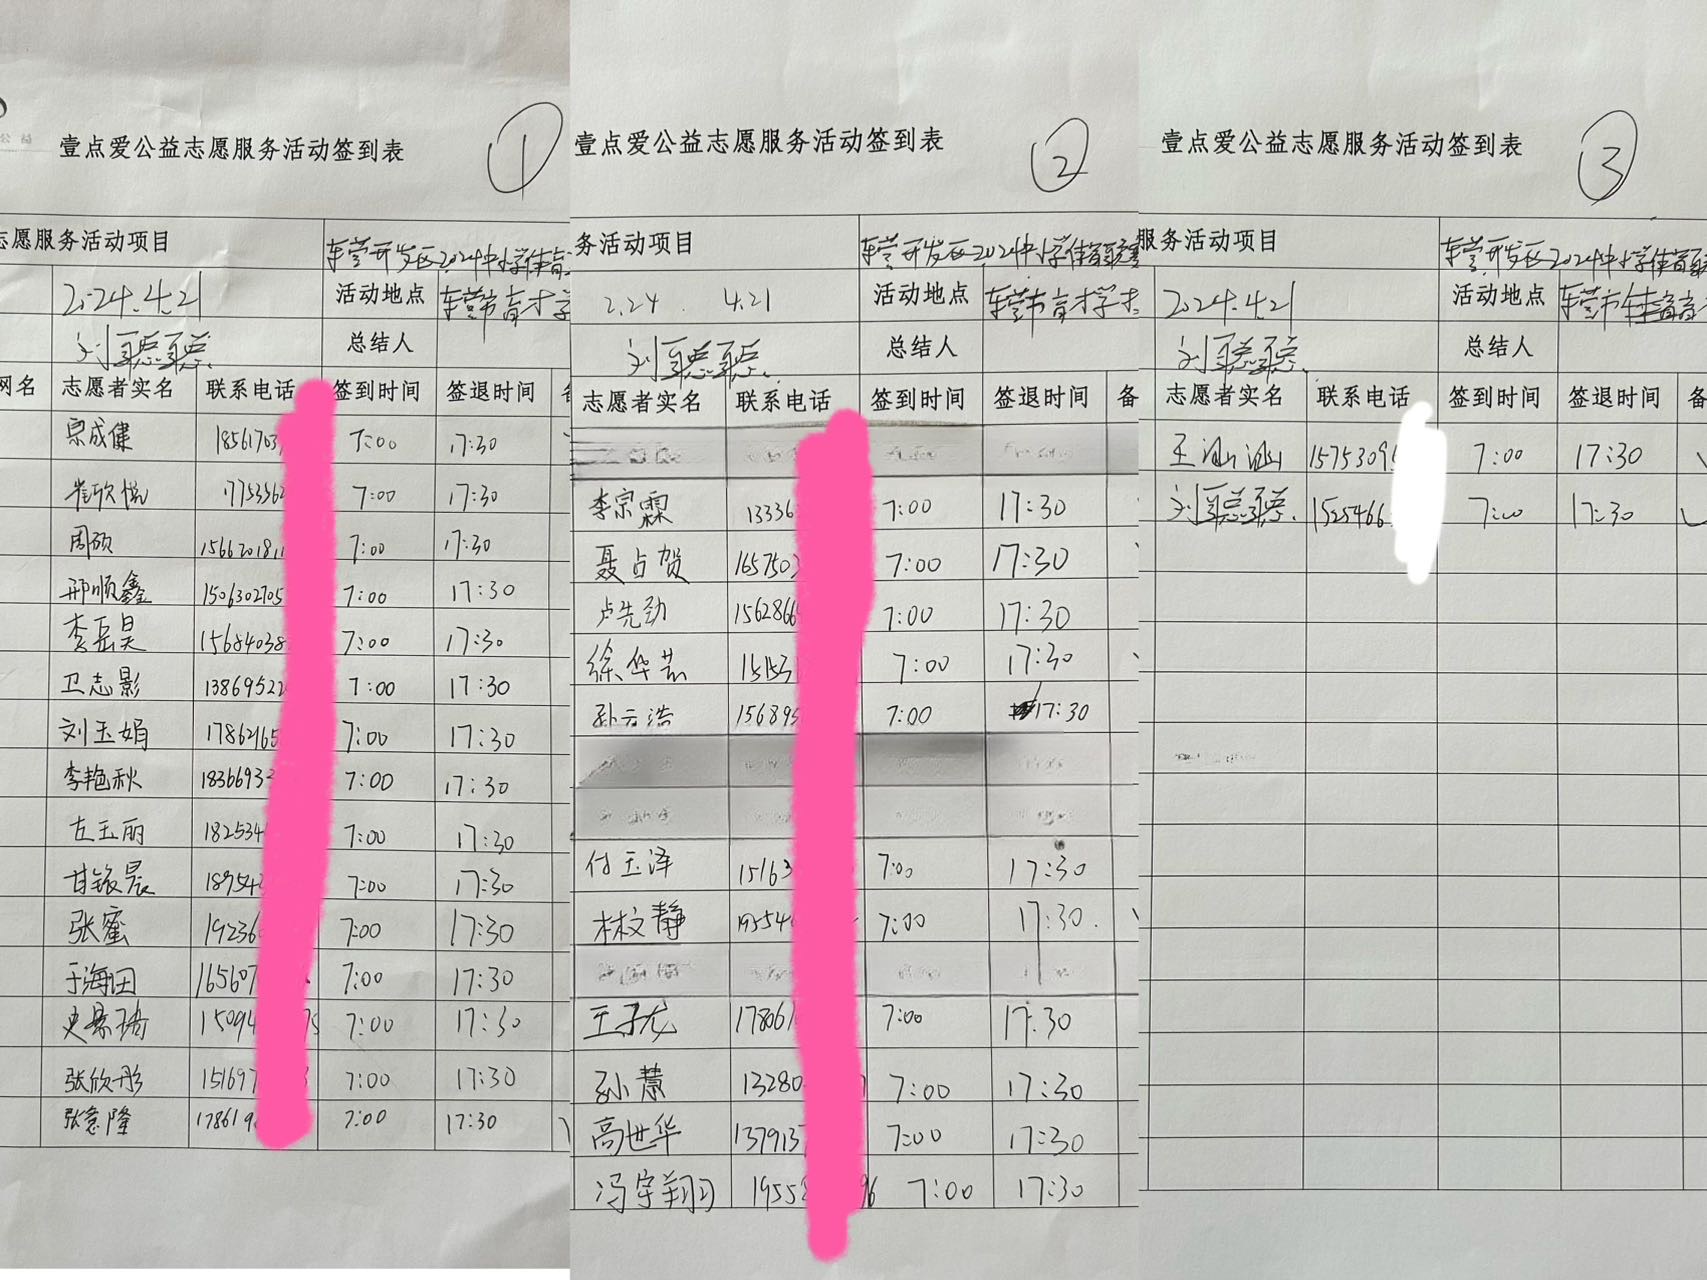 公益
壹点爱公益志愿服务活动签到表
①
志愿服务活动项目
东营开发区2024中小学体育
2024.4.21
活动地点
东营市育才学
刘聪聪
总结人
网名 志愿者实名 联系电话 签到时间 签退时间
宗成健 1856170 7:00 17:30
崔欣悦 1775336 7:00 17:30
周硕 156620181 7:00 17:30
邢顺鑫 150630270 7:00 17:30
李岳昊 15684038 7:00 17:30
卫志影 13869522 7:00 17:30
刘玉娟 17862165 7:00 17:30
李艳秋 1836693 7:00 17:30
左玉丽 182534 7:00 17:30
甘铱晨 18954 7:00 17:30
张蜜 19236 7:00 17:30
于海田 165607 7:00 17:30
15094 7:00 17:30
张欣彤 151697 7:00 17:30
张意隆 178619 7:00 17:30
壹点爱公益志愿服务活动签到表
②
务活动项目
东营开发区2024中小学体育联赛
2.24. 4.21
活动地点
东营市育才学校
刘聪聪
总结人
志愿者实名 联系电话 签到时间 签退时间 备
李宗霖 13336 7:00 17:30
聂占贺 1657503 7:00 17:30
卢先劲 1562866 7:00 17:30
徐华芸 15153 7:00 17:30
孙云浩 156895 7:00 17:30
付玉泽 15163 7:00 17:30
林文静 19554 7:00 17:30.
王子龙 178061 7:00 17:30
孙慧 13280 7:00 17:30
高世华 137913 7:00 17:30
冯宇翔 1955 96 7:00 17:30
壹点爱公益志愿服务活动签到表
③
服务活动项目
东营开发区2024中小学体育联
2024.4.21
活动地点
东营市
刘聪聪
总结人
志愿者实名 联系电话 签到时间 签退时间 备
王汕汕 15753095 7:00 17:30
刘聪聪. 1525466 7:00 17:30